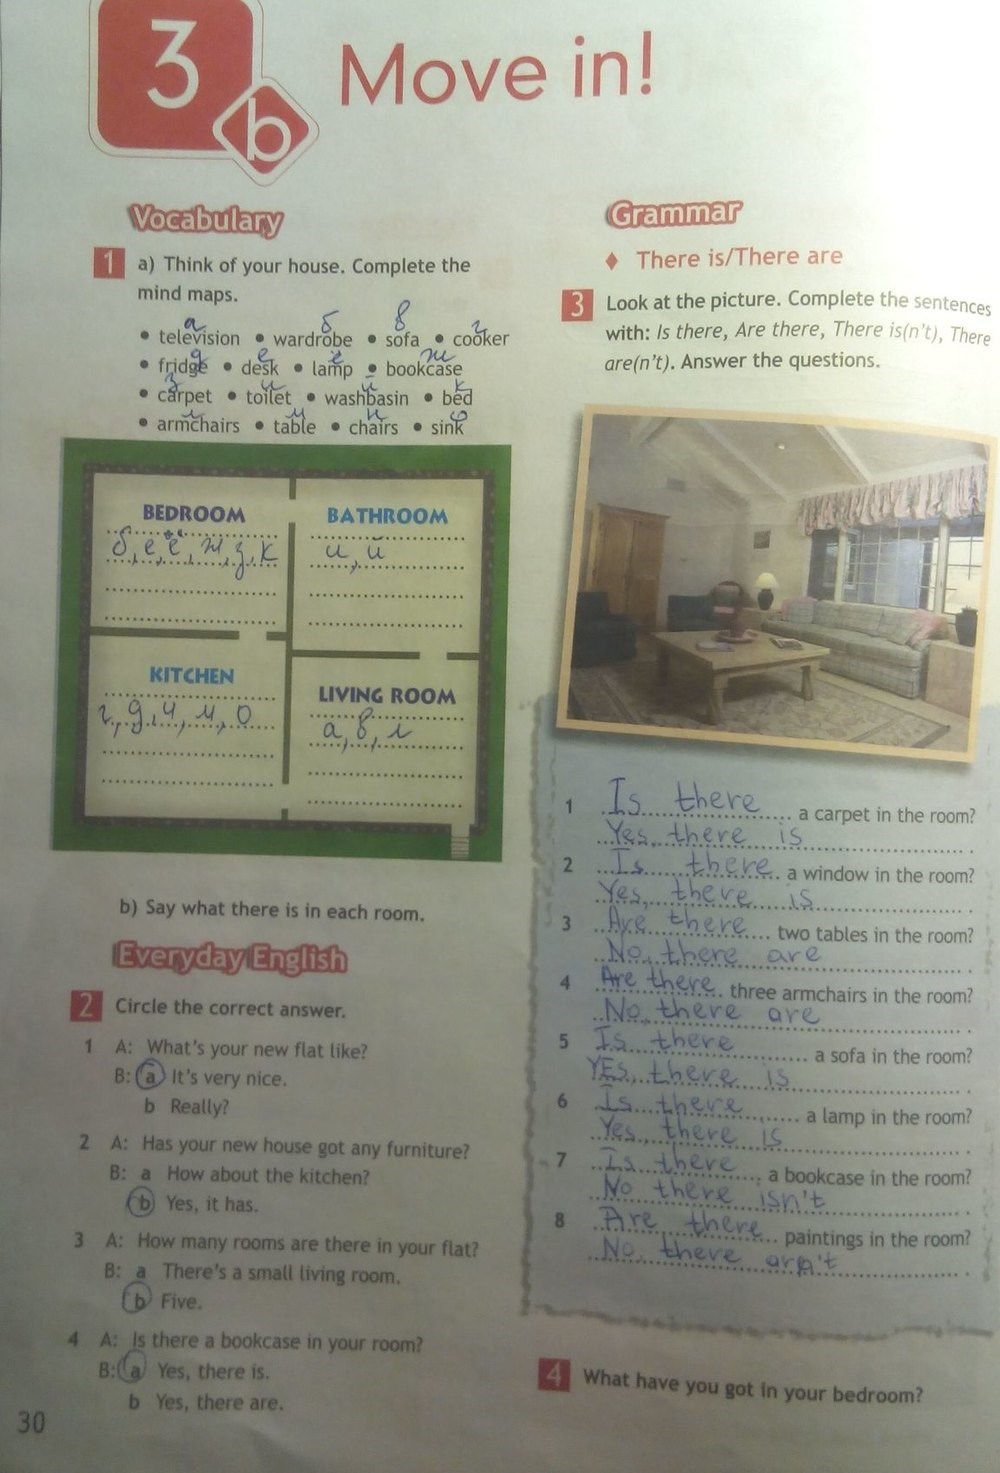 3
b
Move in!
Vocabulary
1 a) Think of your house. Complete the
mind maps.
а б в г
• television • wardrobe • sofa • cooker
д е ё ж
• fridge • desk • lamp • bookcase
з и й к
• carpet • toilet • washbasin • bed
л м н о
• armchairs • table • chairs • sink
BEDROOM
б, е, ё, ж, з, к
BATHROOM
и, й
KITCHEN
г, д, м, о
LIVING ROOM
а, в, л
b) Say what there is in each room.
Everyday English
2 Circle the correct answer.
1 A: What's your new flat like?
B: a It's very nice.
b Really?
2 A: Has your new house got any furniture?
B: a How about the kitchen?
b Yes, it has.
3 A: How many rooms are there in your flat?
B: a There's a small living room.
b Five.
4 A: Is there a bookcase in your room?
B: a Yes, there is.
b Yes, there are.
30
Grammar
♦ There is/There are
3 Look at the picture. Complete the sentences
with: Is there, Are there, There is(n't), There
are(n't). Answer the questions.
1 Is there a carpet in the room?
Yes, there is.
2 Is there a window in the room?
Yes, there is.
3 Are there two tables in the room?
No, there are.
4 Are there three armchairs in the room?
No, there are.
5 Is there a sofa in the room?
YEs, there is.
6 Is there a lamp in the room?
Yes, there is.
7 Is there a bookcase in the room?
No there isn't.
8 Are there paintings in the room?
No, there aren't.
4 What have you got in your bedroom?